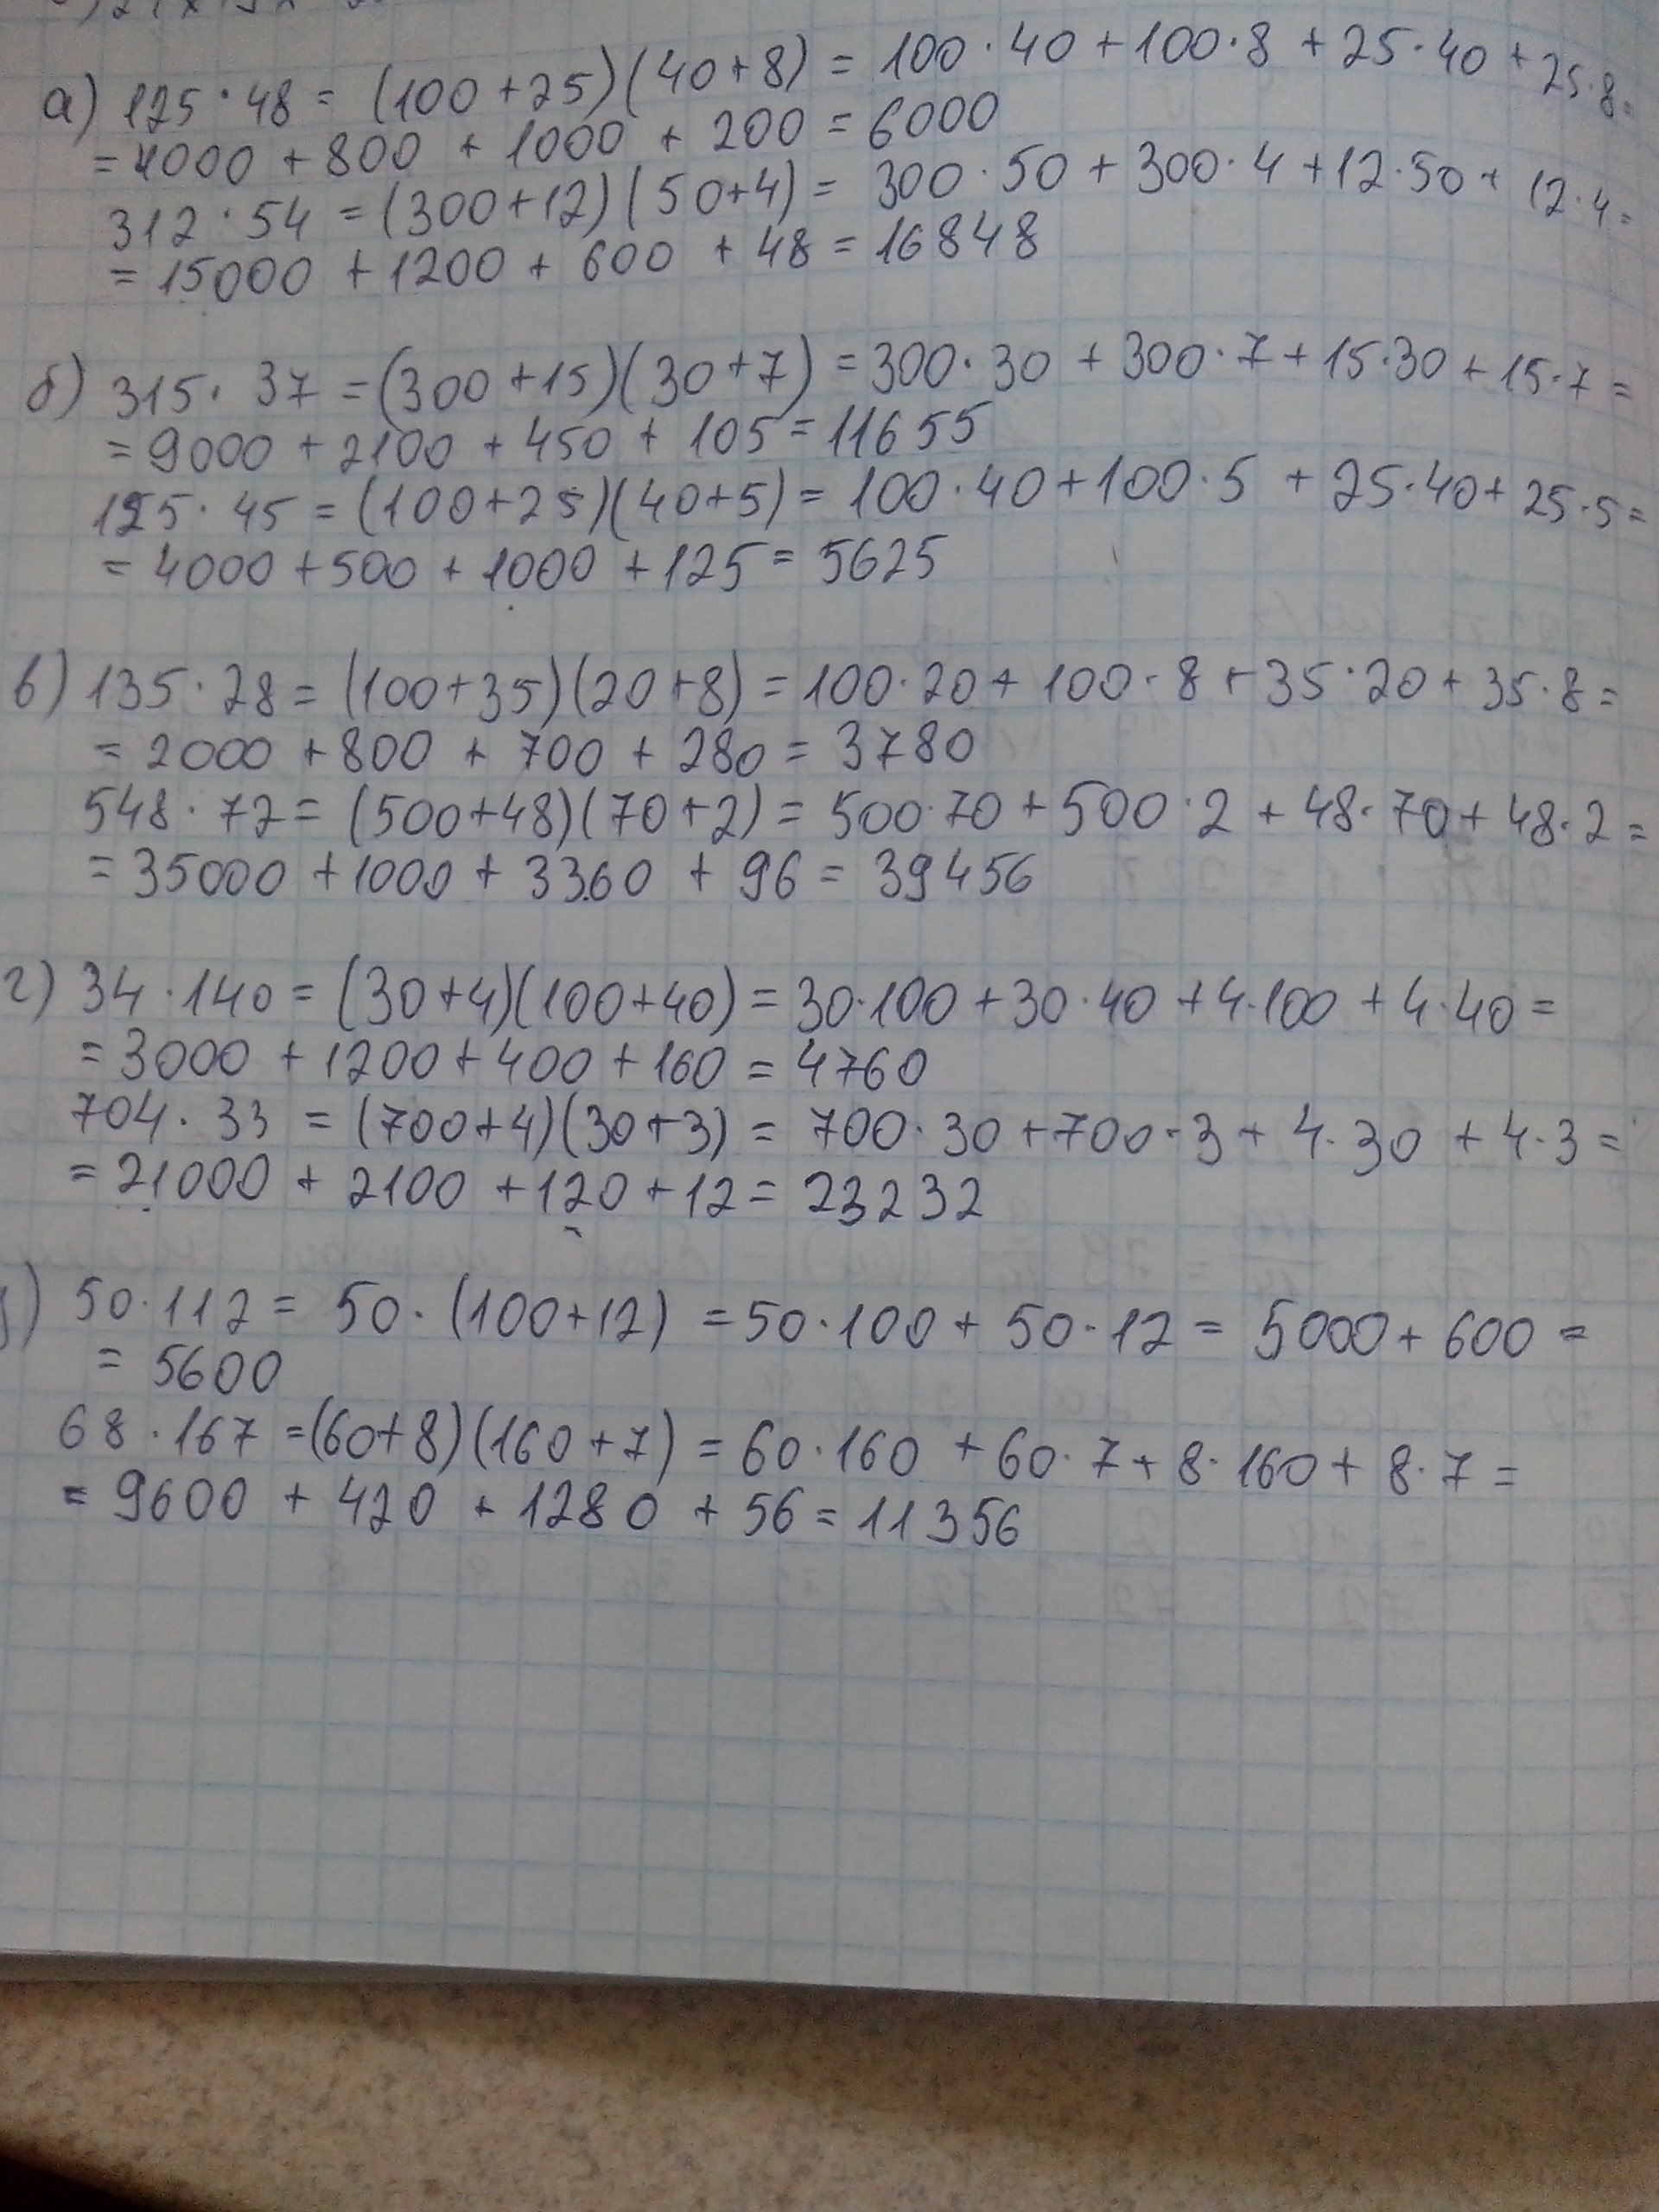 а) 125·48 = (100+25)(40+8) = 100·40+100·8+25·40+25·8=
=4000+800+1000+200=6000
312·54=(300+12)(50+4)=300·50+300·4+12·50+12·4=
=15000+1200+600+48=16848
б) 315·37=(300+15)(30+7)=300·30+300·7+15·30+15·7=
=9000+2100+450+105=11655
125·45=(100+25)(40+5)=100·40+100·5+25·40+25·5=
=4000+500+1000+125=5625
в) 135·28=(100+35)(20+8)=100·20+100·8+35·20+35·8=
=2000+800+700+280=3780
548·72=(500+48)(70+2)=500·70+500·2+48·70+48·2=
=35000+1000+3360+96=39456
г) 34·140=(30+4)(100+40)=30·100+30·40+4·100+4·40=
=3000+1200+400+160=4760
704·33=(700+4)(30+3)=700·30+700·3+4·30+4·3=
=21000+2100+120+12=23232
) 50·112=50·(100+12)=50·100+50·12=5000+600=
=5600
68·167=(60+8)(160+7)=60·160+60·7+8·160+8·7=
=9600+420+1280+56=11356